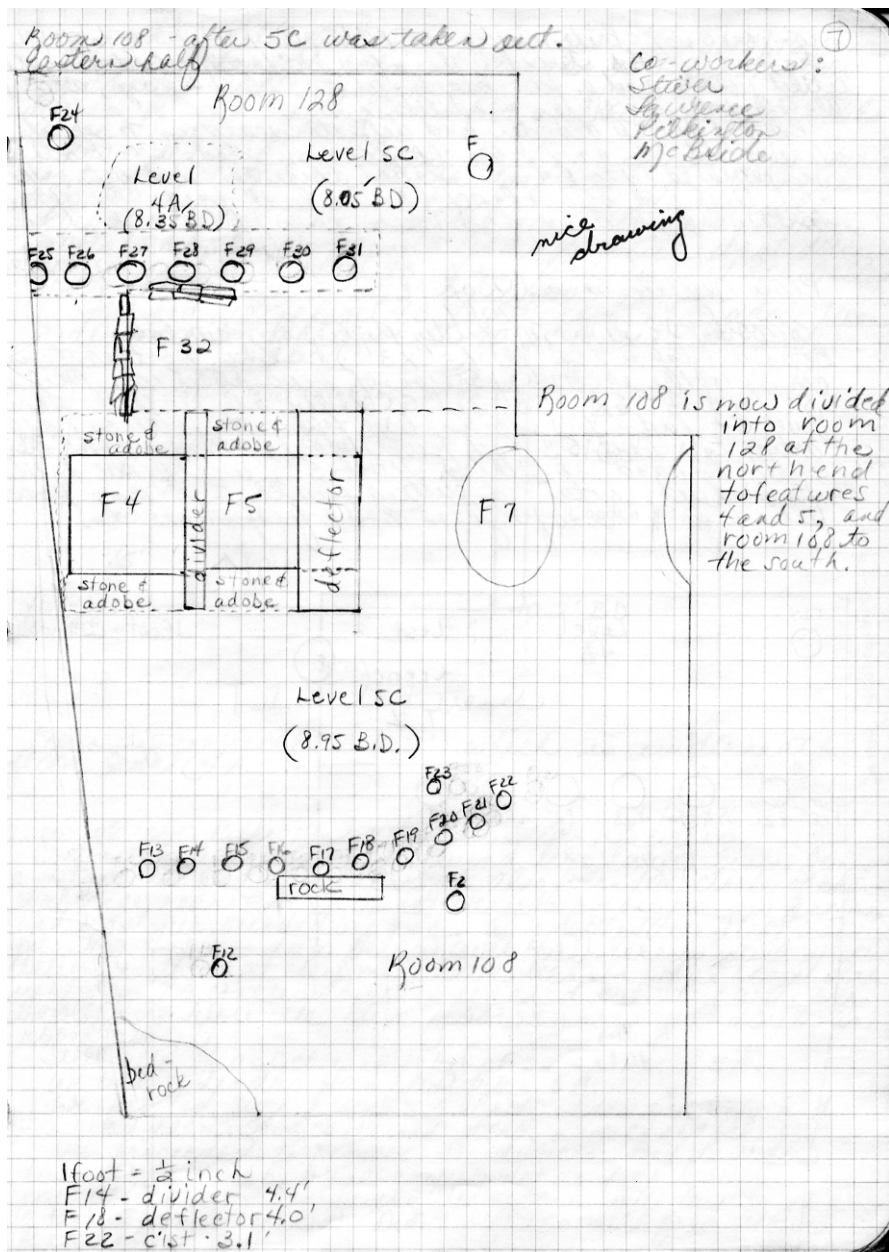 Room 108 - after 5C was taken out.
Eastern half
7
Co-workers:
Stiver
Lawrence
Pilkington
McBride
Room 128
F24
Level 5C
(8.05' BD)
F
Level
4A
(8.35' BD)
nice
drawing
F25 F26 F27 F28 F29 F30 F31
F 32
Room 108 is now divided
into room
128 at the
north end
tofeatures
4 and 5, and
room 108 to
the south.
stone &
adobe
stone &
adobe
F4
divider
F5
deflector
F7
stone &
adobe
stone &
adobe
Level 5C
(8.95 B.D.)
F23
F22
F21
F20
F13 F14 F15 F16 F17 F18 F19
rock
F2
F12
Room 108
bed-
rock
1foot = ½ inch
F14 - divider 4.4'
F18 - deflector 4.0'
F22 - cist - 3.1'